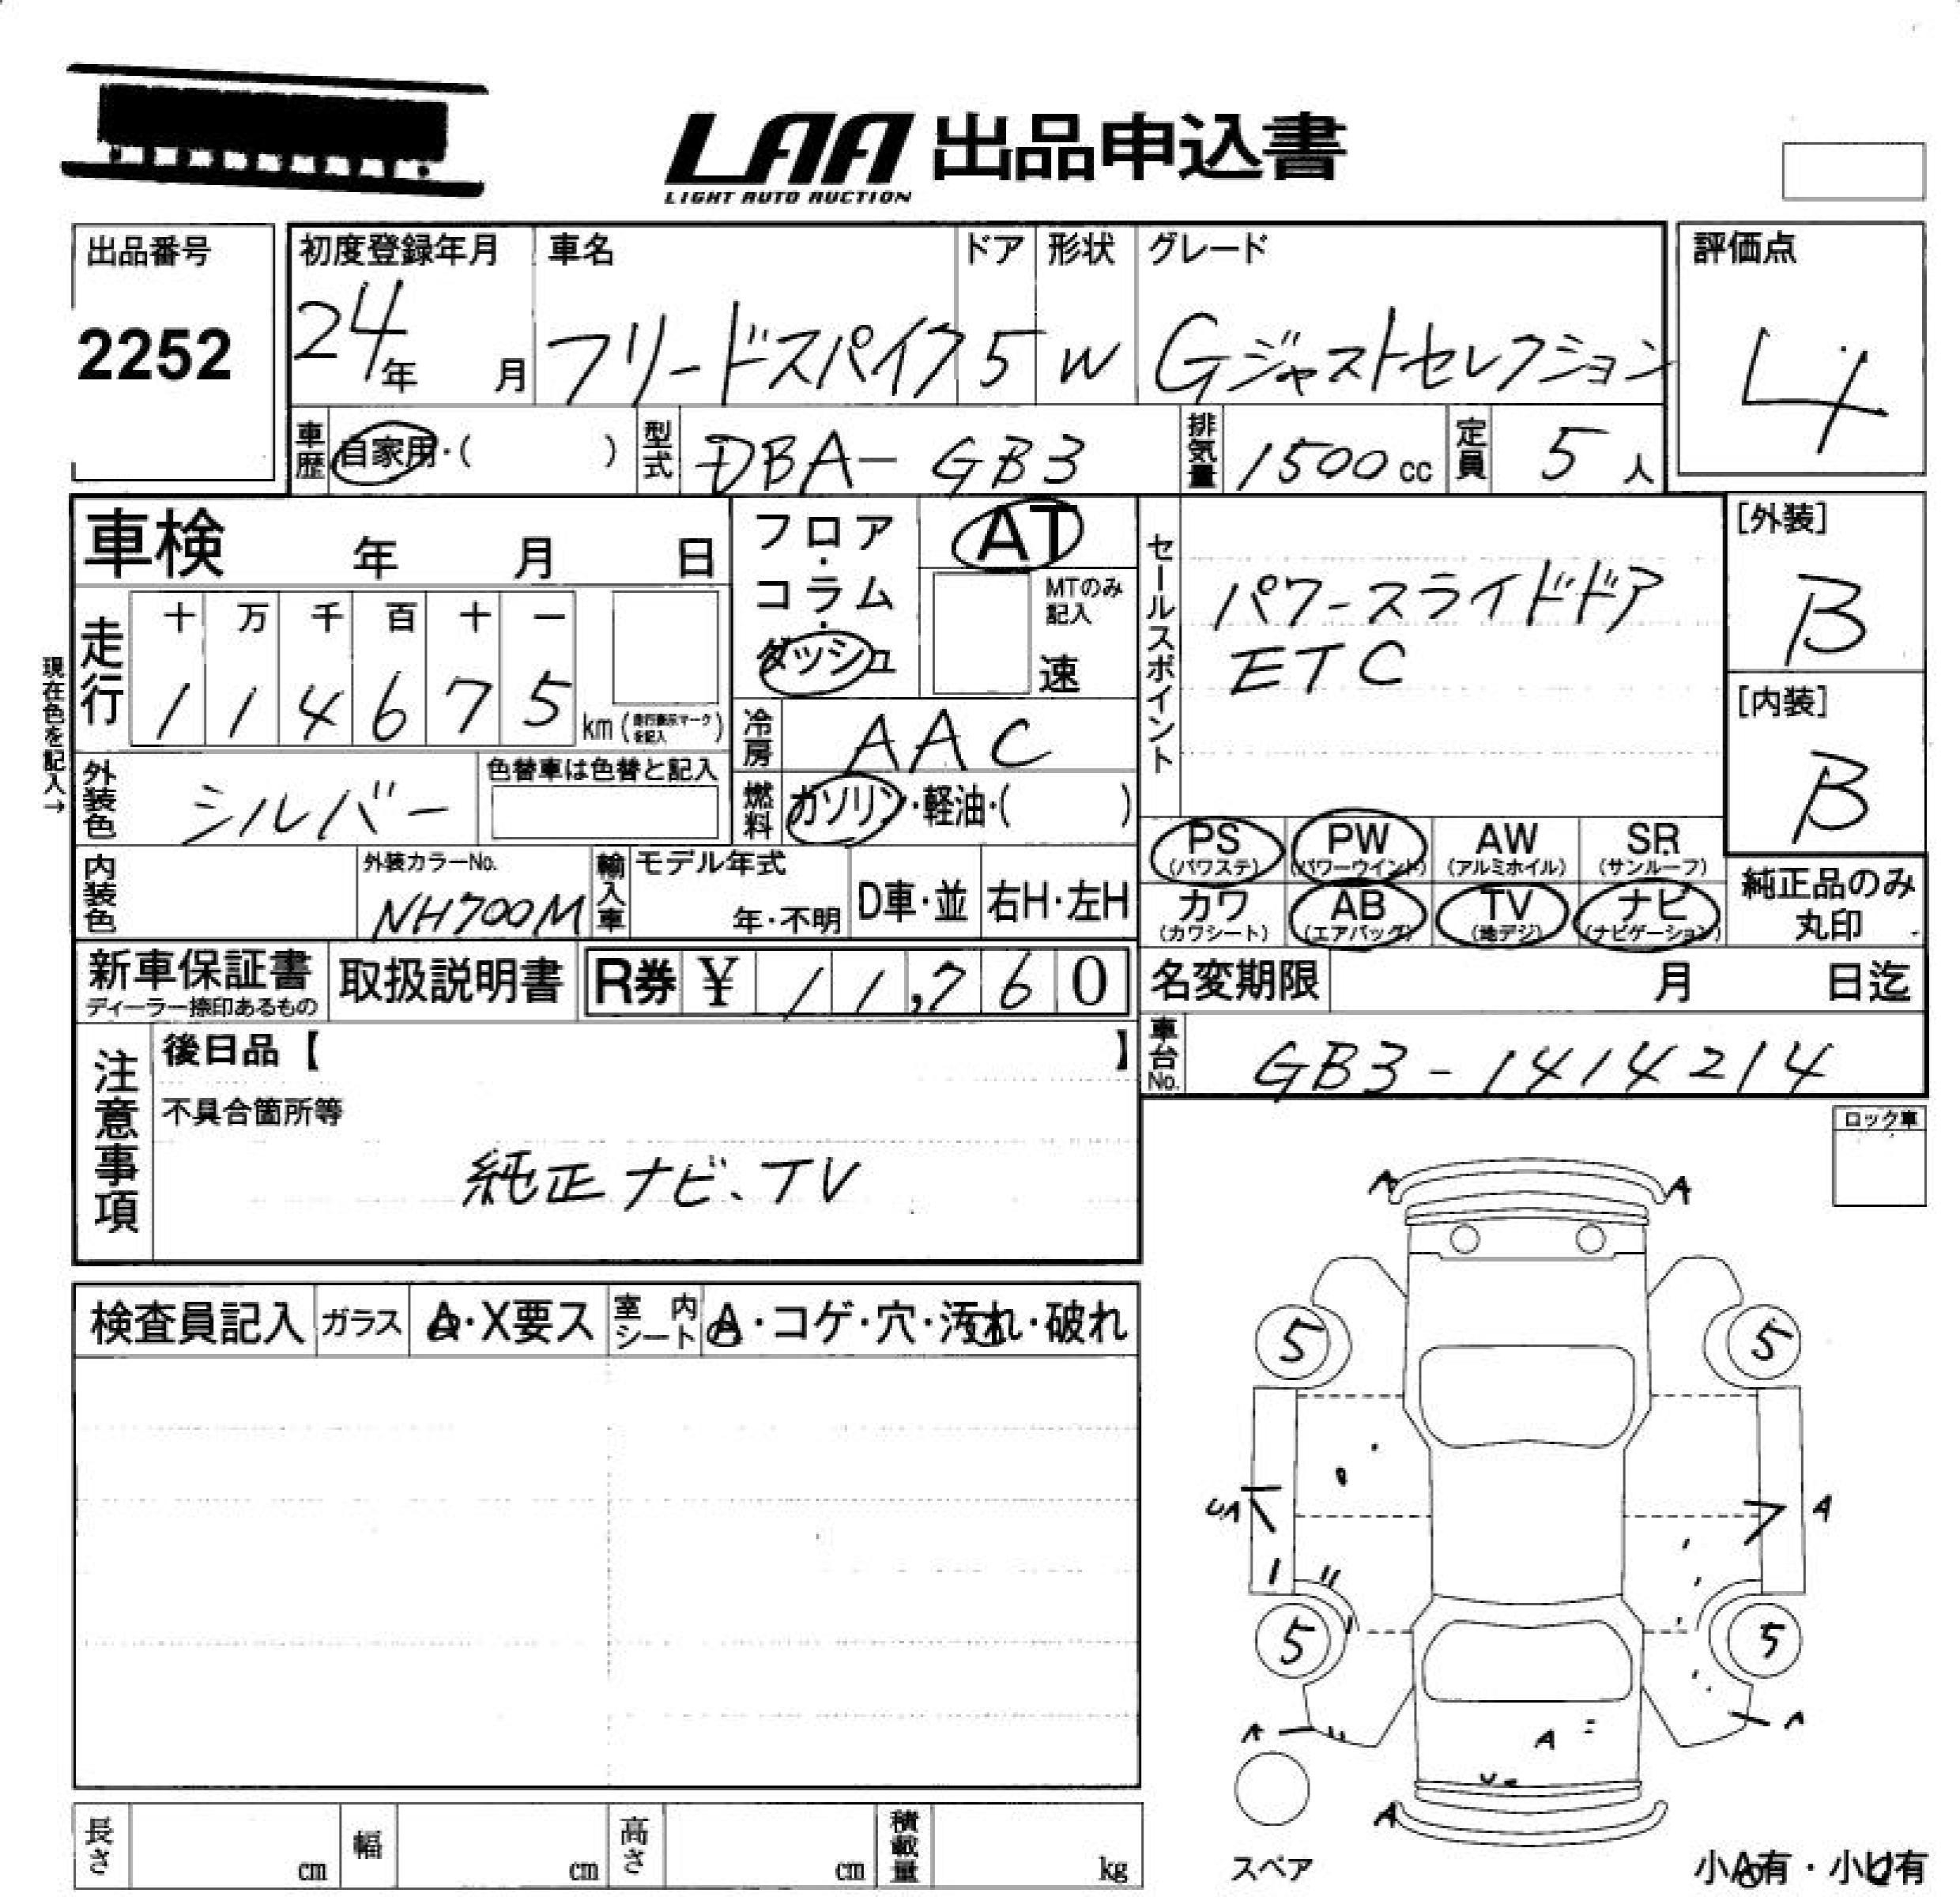 LAA 出品申込書
LIGHT AUTO AUCTION
出品番号
2252
初度登録年月
24年 月
車名
フリードスパイク
ドア
5
形状
W
グレード
Gジャストセレクション
評価点
4
車歴 自家用・( )
型式 DBA-GB3
排気量 1500cc
定員 5人
車検 年 月 日
フロア・コラム・ダッシュ
AT
MTのみ記入
速
セールスポイント
パワースライドドア
ETC
[外装]
B
[内装]
B
現在色を記入→
走行
十 万 千 百 十 一
1 1 4 6 7 5 km (走行表示マークを記入)
冷房 AAC
外装色 シルバー
色替車は色替と記入
燃料 ガソリン・軽油・( )
PS (パワステ)
PW (パワーウインド)
AW (アルミホイル)
SR (サンルーフ)
カワ (カワシート)
AB (エアバッグ)
TV (地デジ)
ナビ (ナビゲーション)
純正品のみ
丸印
内装色
外装カラーNo.
NH700M
輸入車
モデル年式
年・不明
D車・並
右H・左H
新車保証書
ディーラー捺印あるもの
取扱説明書
R券 ¥ 11,760
名変期限 月 日迄
車台No. GB3-1414214
注意事項
後日品【 】
不具合箇所等
純正ナビ、TV
ロック車
検査員記入
ガラス
A・X要ス
室内シート
A・コゲ・穴・汚れ・破れ
A A
5 5
UA A
5 5
A A
A
A
スペア
小A有・小U有
長さ cm
幅 cm
高さ cm
積載量 kg